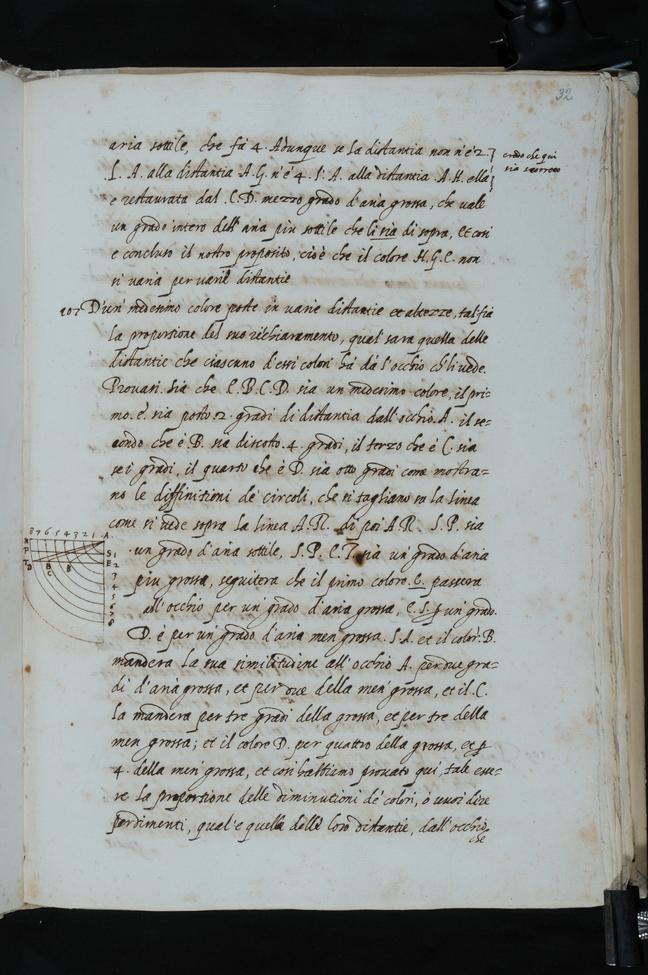 32
aria sottile, che fà 4. Adunque se la distantia non n'è 2.
credo che qui
sia scorretto
S. A. alla distantia A.G. n'è 4. S. A. alla distantia A.H. ella
e restaurata dal C.D. mezzo grado d'aria grossa, che vale
un grado intero dell'aria più sottile che li sia di sopra, et cosi
e concluso il nostro proposito, cioè che il colore H.G.C. non
si varia per varie distantie
107 D'un medesimo colore poste in varie distantie et altezze, tal sia
la proporsione del suo rischiaramento, qual sara quella delle
distantie che ciascuno d'essi colori hà dà l'occhio ch li vede.
Provasi. Sia che E.B.C.D. sia un medesimo colore, il pri=
mo. E. sia posto 2. gradi di distantia dall'occhio. A. il se=
condo che è B. sia discosto. 4. gradi, il terzo che è C. sia
sei gradi, il quarto che è D. sia otto gradi come mostra=
no le diffinitioni de circoli, che si tagliano su la linea
come si vede sopra la linea A.R. di poi A R. S.P. sia
un grado d'aria sottile, S.P. E.T. sia un grado d'aria
più grossa, seguitera che il primo colore. E. passera
all'occhio per un grado d'aria grossa, E.S. un grado.
D. è per un grado d'aria men grossa. S.A. et il color. B.
mandera la sua similitudine all'occhio A. per due gra=
di d'aria grossa, et per due della men'grossa, et il C.
la mandera per tre gradi della grossa, et per tre della
men grossa; et il colore D. per quattro della grossa, et p
4. della men'grossa, et cosi habbiamo provato qui, tale esse=
re la proporsione delle diminutioni de' colori, ò vuoi dire
perdimenti, qual'e quella delle loro distantie, dall'occhio
che
8 7 6 5 4 3 2 1 A.
R
P
T
S 1
E 2
3
4
5
6
7
8
D
B
C
B